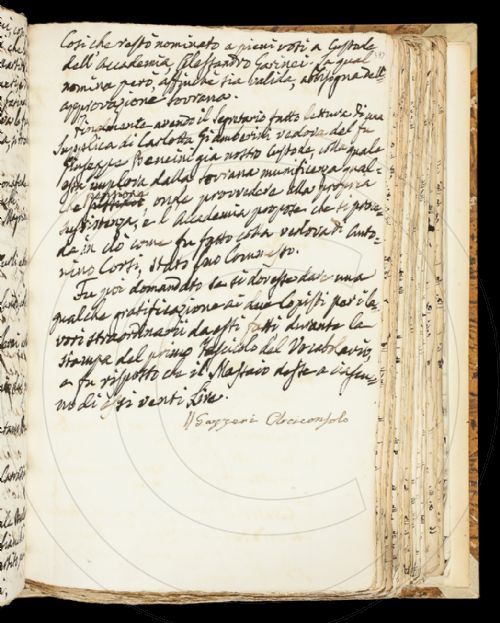 Cosiché restò nominato a pieni voti a Custode
dell'Accademia Alessandro Garinei. La qual
nomina però, affinché sia valida, abbisogna dell'
approvazione sovrana.
Finalmente avendo il Segretario fatto lettura di una
Supplica di Carlotta Giamberidi vedova del fu
Giuseppe Bencini già nostro Custode, colla quale
essa implora dalla sovrana munificenza qual-
che pensione, onde provvedere alla propria
sussistenza, e l'Accademia propose che si proce-
da in ciò come fu fatto colla vedova di Anto-
nino Corsi, stato suo Commesso.
Fu poi domandato se si dovesse dare una
qualche gratificazione ai due Copisti per i la-
vori straordinarii da essi fatti durante la
stampa del primo Fascicolo del Vocabolario,
e fu risposto che il Massaio desse a ciascu-
no di essi venti Lire.
Gazzeri Arciconsolo